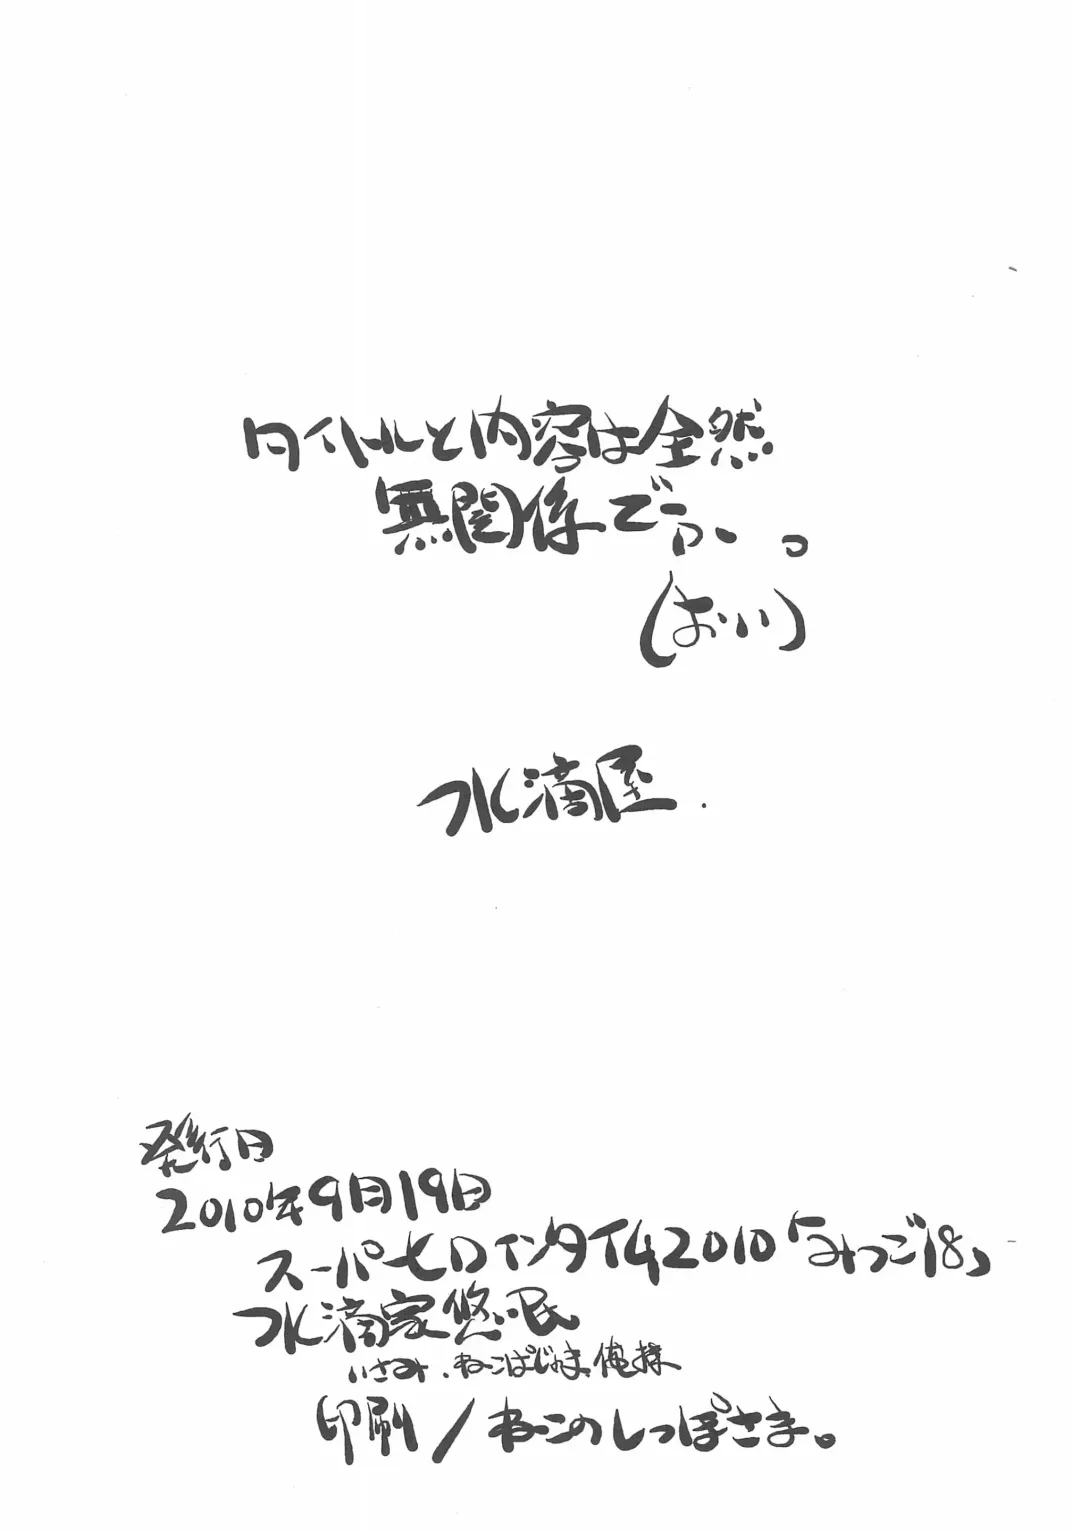 タイトルと内容は全然
無関係でぅ、。
(おいい)
水滴屋.
発行日
2010年9月19日
スーパーヒロインタイム2010「みつご18」
水滴家悠泯
いさみ.ねこぱじゃま、俺様
印刷/ねこのしっぽさま。